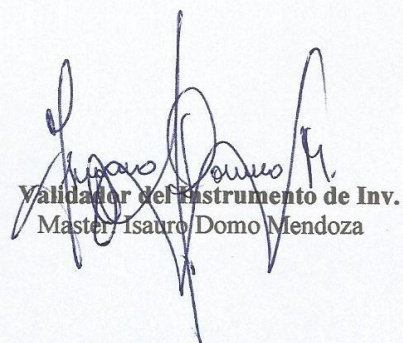 Isauro Domo M.
Validador del Instrumento de Inv.
Master. Isauro Domo Mendoza